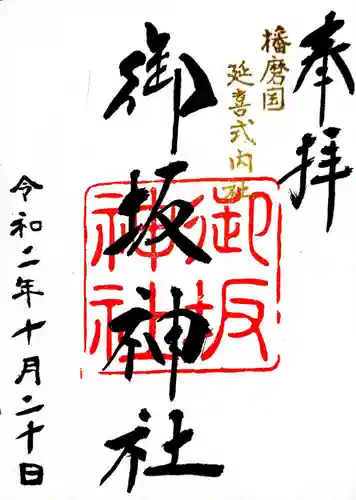 奉拝
播磨国
延喜式内社
御坂神社
御坂神社
令和二年十月二十日